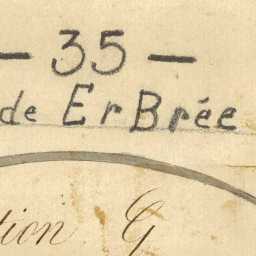 — 35 —
de Er Brée
tion G